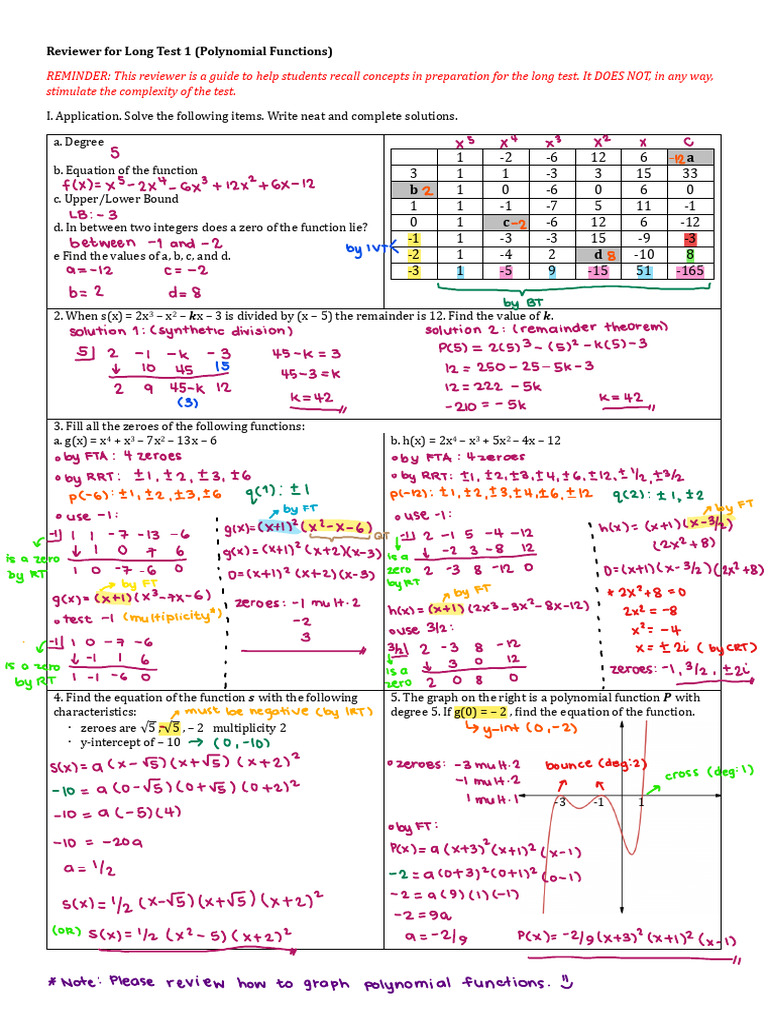 Reviewer for Long Test 1 (Polynomial Functions)
REMINDER: This reviewer is a guide to help students recall concepts in preparation for the long test. It DOES NOT, in any way,
stimulate the complexity of the test.
I. Application. Solve the following items. Write neat and complete solutions.
a. Degree
5
b. Equation of the function
f(x) = x⁵ - 2x⁴ - 6x³ + 12x² + 6x - 12
c. Upper/Lower Bound
LB: - 3
d. In between two integers does a zero of the function lie?
between -1 and -2
e Find the values of a, b, c, and d.
a = -12 c = -2
b = 2 d = 8
x⁵ x⁴ x³ x² x c
1 -2 -6 12 6 -12 a
3 1 1 -3 3 15 33
b 2 1 0 -6 0 6 0
1 1 -1 -7 5 11 -1
0 1 c -2 -6 12 6 -12
-1 1 -3 -3 15 -9 -3
-2 1 -4 2 d 8 -10 8
-3 1 -5 9 -15 51 -165
by IVT
by BT
2. When s(x) = 2x³ – x² – kx – 3 is divided by (x – 5) the remainder is 12. Find the value of k.
solution 1: (synthetic division)
5| 2 -1 -k -3
↓ 10 45 15
2 9 45-k 12
(3)
45 - k = 3
45 - 3 = k
k = 42
solution 2: (remainder theorem)
P(5) = 2(5)³ - (5)² - k(5) - 3
12 = 250 - 25 - 5k - 3
12 = 222 - 5k
-210 = -5k k = 42
3. Fill all the zeroes of the following functions:
a. g(x) = x⁴ + x³ – 7x² – 13x – 6
by FTA: 4 zeroes
by RRT: ±1, ±2, ±3, ±6
p(-6): ±1, ±2, ±3, ±6 q(1): ±1
use -1:
-1| 1 1 -7 -13 -6
↓ -1 0 7 6
1 0 -7 -6 0
is a zero
by RT
by FT
g(x) = (x+1)(x³-7x-6)
test -1 (multiplicity*)
-1| 1 0 -7 -6
↓ -1 1 6
1 -1 -6 0
is a zero
by RT
by FT
g(x) = (x+1)² (x²-x-6)
QT
g(x) = (x+1)² (x+2)(x-3)
0 = (x+1)² (x+2)(x-3)
zeroes: -1 mult. 2
-2
3
b. h(x) = 2x⁴ – x³ + 5x² – 4x – 12
by FTA: 4 zeroes
by RRT: ±1, ±2, ±3, ±4, ±6, ±12, ±1/2, ±3/2
p(-12): ±1, ±2, ±3, ±4, ±6, ±12 q(2): ±1, ±2
use -1:
-1| 2 -1 5 -4 -12
↓ -2 3 -8 12
2 -3 8 -12 0
is a
zero
by RT
by FT
h(x) = (x+1)(2x³-3x²-8x-12)
use 3/2:
3/2| 2 -3 8 -12
↓ 3 0 12
2 0 8 0
is a
zero
by FT
h(x) = (x+1)(x-3/2)
(2x²+8)
0 = (x+1)(x-3/2)(2x²+8)
* 2x²+8 = 0
2x² = -8
x² = -4
x = ±2i (by CRT)
zeroes: -1, 3/2, ±2i
4. Find the equation of the function s with the following
characteristics:
must be negative (by IRT)
· zeroes are √5, -√5, – 2 multiplicity 2
· y-intercept of – 10 → (0, -10)
s(x) = a(x-√5)(x+√5)(x+2)²
-10 = a(0-√5)(0+√5)(0+2)²
-10 = a(-5)(4)
-10 = -20a
a = 1/2
s(x) = 1/2 (x-√5)(x+√5)(x+2)²
(OR) s(x) = 1/2 (x²-5)(x+2)²
5. The graph on the right is a polynomial function P with
degree 5. If g(0) = – 2 , find the equation of the function.
y-int (0, -2)
zeroes: -3 mult. 2
-1 mult. 2
1 mult. 1
bounce (deg:2)
cross (deg:1)
-3 -1 1
by FT:
P(x) = a(x+3)²(x+1)²(x-1)
-2 = a(0+3)²(0+1)²(0-1)
-2 = a(9)(1)(-1)
-2 = 9a
a = -2/9
P(x) = -2/9 (x+3)²(x+1)²(x-1)
* Note: Please review how to graph polynomial functions.